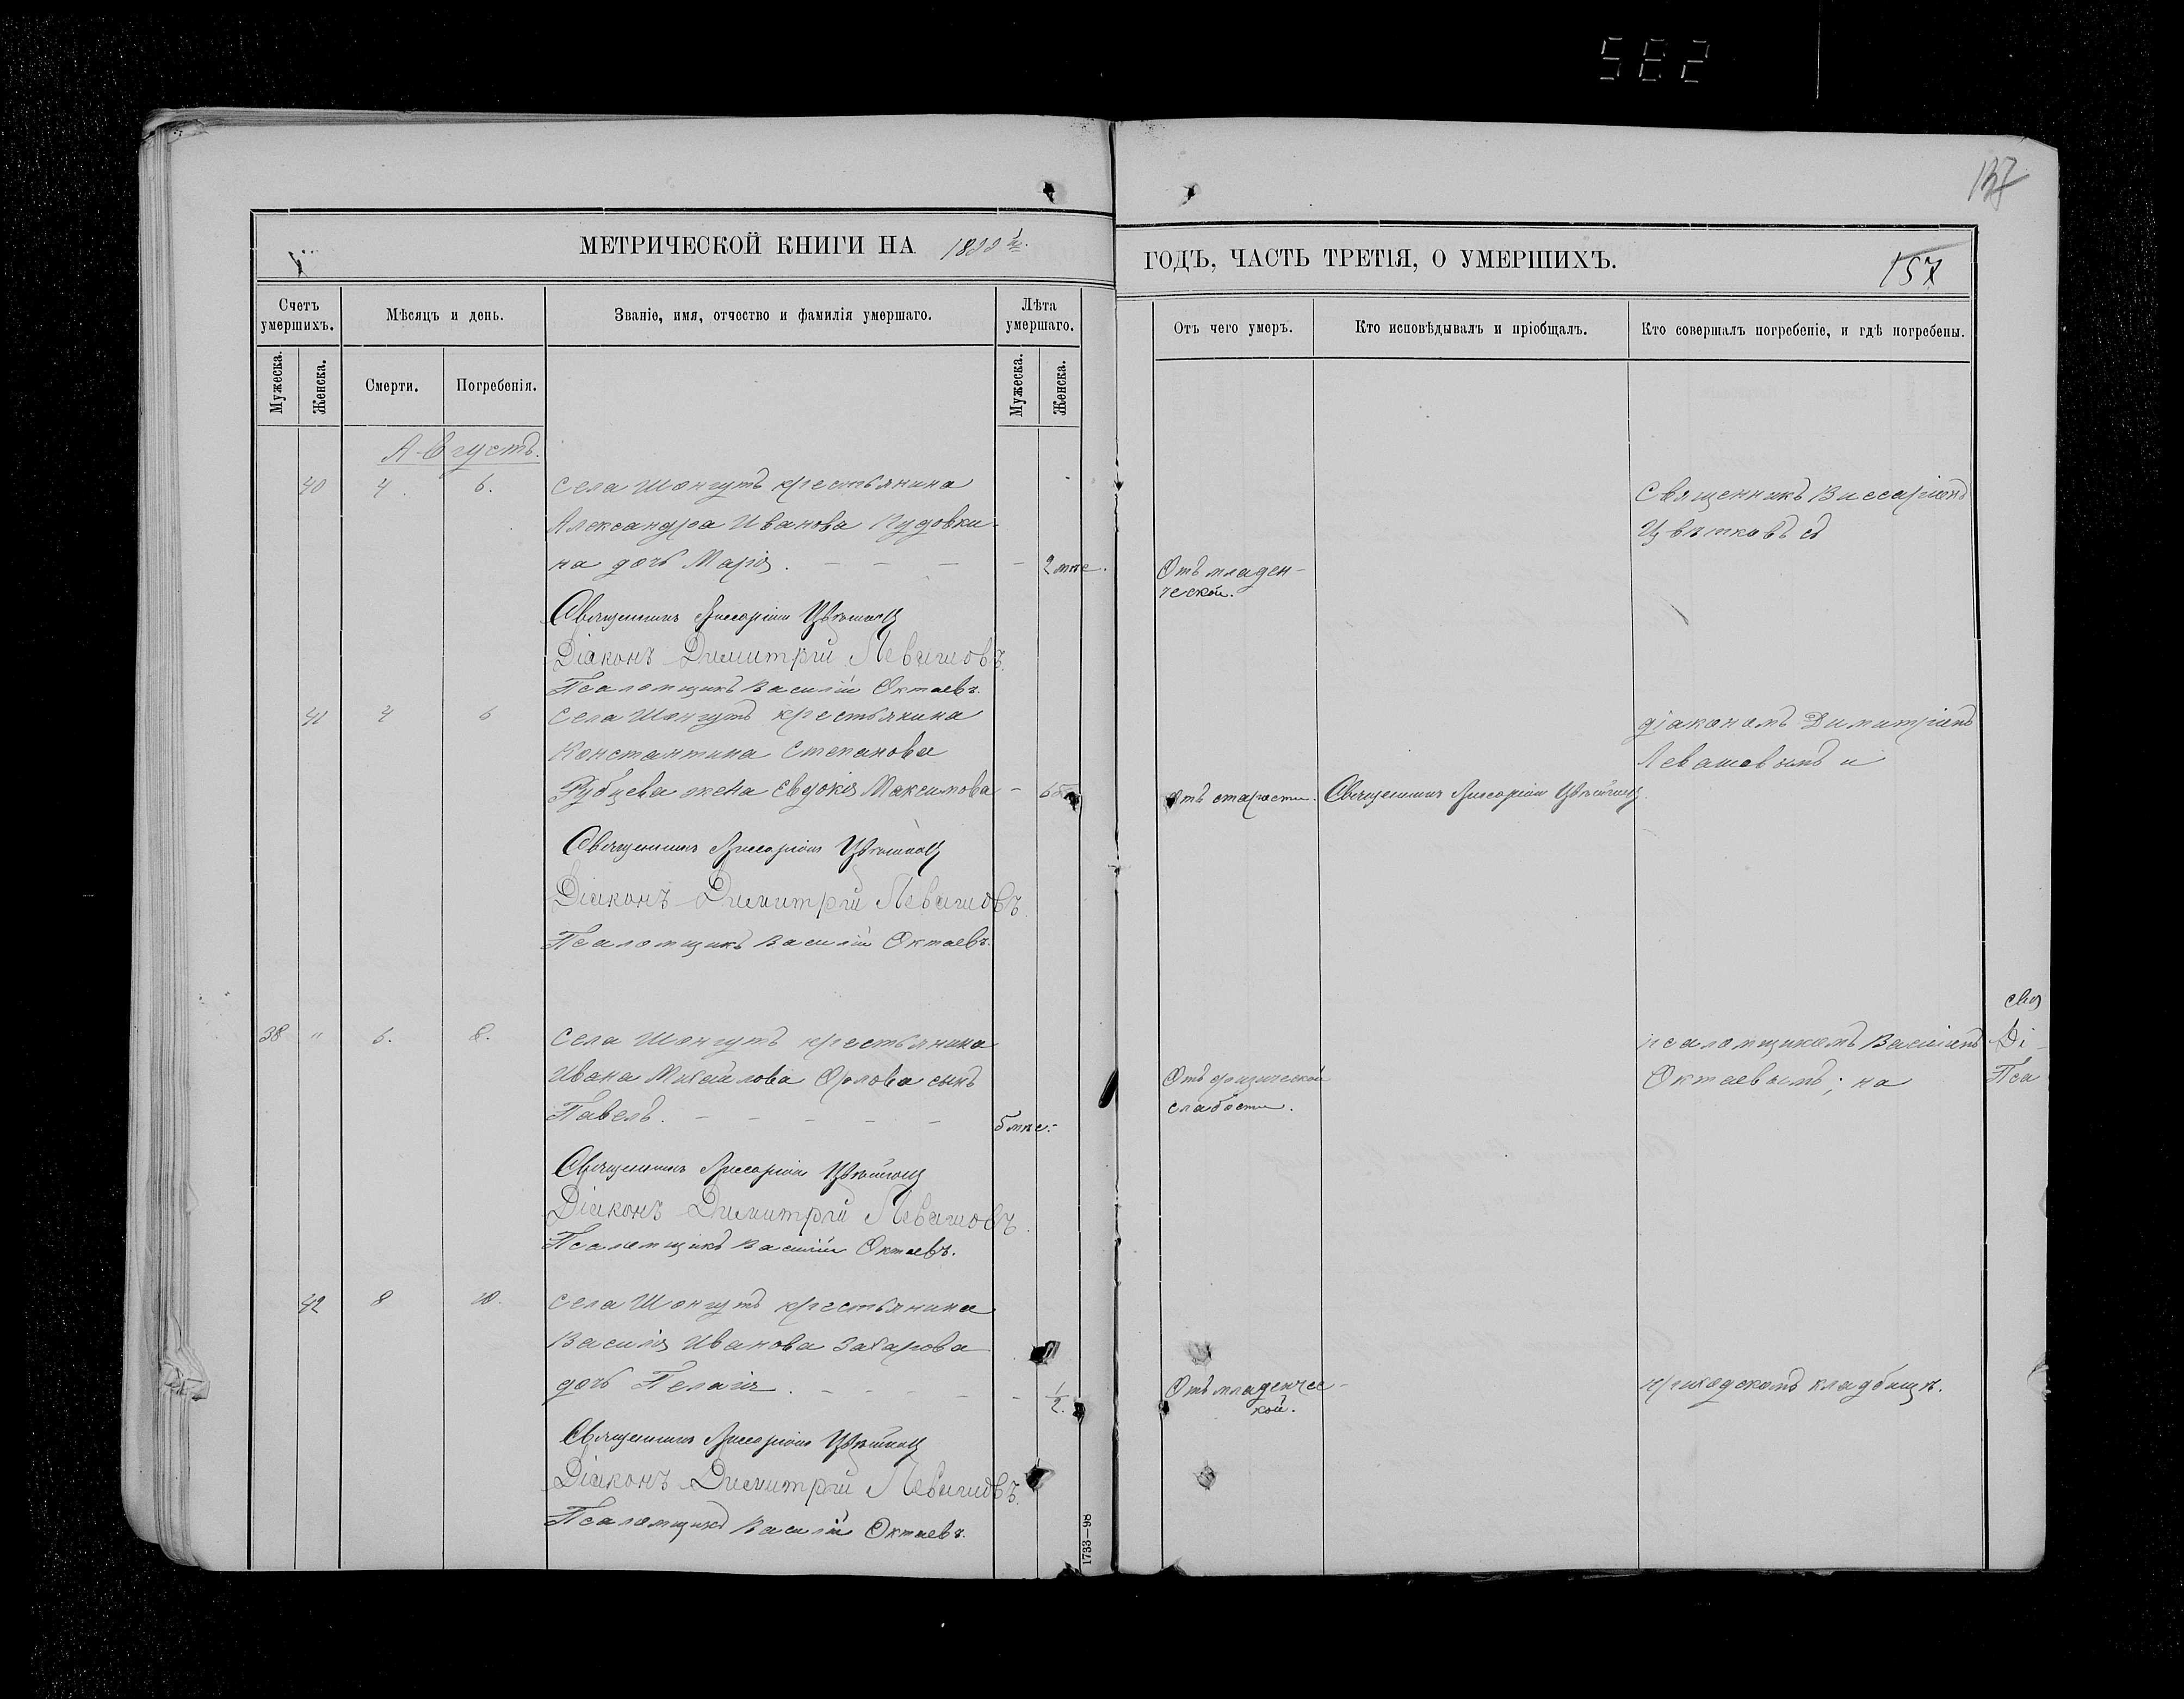 582
137
МЕТРИЧЕСКОЙ КНИГИ НА
ГОДЪ, ЧАСТЬ ТРЕТІЯ, О УМЕРШИХЪ.
157
Счетъ умершихъ.
Мѣсяцъ и день.
Званіе, имя, отчество и фамилія умершаго.
Лѣта умершаго.
Отъ чего умеръ.
Кто исповѣдывалъ и пріобщалъ.
Кто совершалъ погребеніе, и гдѣ погребены.
Мужеска.
Женска.
Смерти.
Погребенія.
Мужеска.
Женска.
Августъ.
40 4. 6. Села Шонгутъ крестьянина
Александра Иванова Пудовки-
на дочь Марія. 2 мѣс.
Отъ младен-
ческой.
Священникъ Виссаріонъ
Цвѣтковъ съ
Священникъ Виссаріонъ Цвѣтковъ
Діаконъ Димитрій Левашовъ.
Псаломщикъ Василій Октаевъ.
41 4 6 Села Шонгутъ крестьянина
Константина Степанова
Рубцева жена Евдокія Максимова
Отъ старости. Священникъ Виссаріонъ Цвѣтковъ.
діакономъ Димитріемъ
Левашовымъ и
Священникъ Виссаріонъ Цвѣтковъ
Діаконъ Димитрій Левашовъ.
Псаломщикъ Василій Октаевъ.
38 " 6. 8. Села Шонгутъ крестьянина
Ивана Михайлова Орлова сынъ
Павелъ. 5 мѣс.
Отъ физической
слабости.
псаломщикомъ Василіемъ
Октаевымъ; на
Свя
Ді
Пса
Священникъ Виссаріонъ Цвѣтковъ
Діаконъ Димитрій Левашовъ.
Псаломщикъ Василій Октаевъ.
42 8 10. Села Шонгутъ крестьянина
Василія Иванова Захарова
дочь Пелагія. 1/2.
Отъ младенчес-
кой.
приходскомъ кладбищѣ.
Священникъ Виссаріонъ Цвѣтковъ
Діаконъ Димитрій Левашовъ.
Псаломщикъ Василій Октаевъ.
1733—98